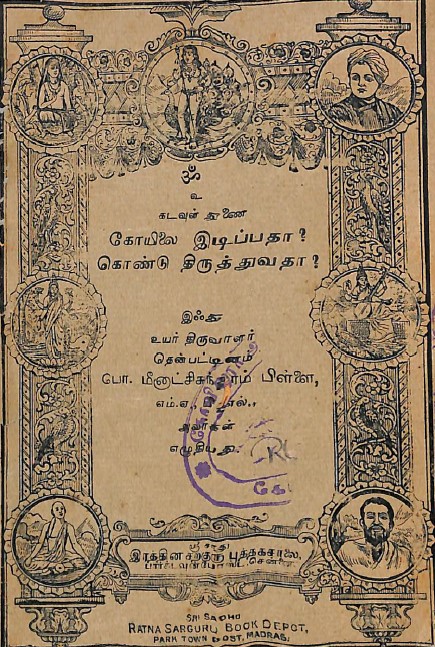 ௐ
உ
கடவுள் துணை
கோயிலை இடிப்பதா?
கொண்டு திருத்துவதா?
இஃது
உயர் திருவாளர்
தென்பட்டினம்
பொ. மீனாட்சிசுந்தரம் பிள்ளை,
எம்.ஏ.,
அவர்கள்
எழுதியது.
இரத்தின சற்குரு புத்தகசாலை,
SRI SADHU
RATNA SARGURU BOOK DEPOT,
PARK TOWN POST, MADRAS.